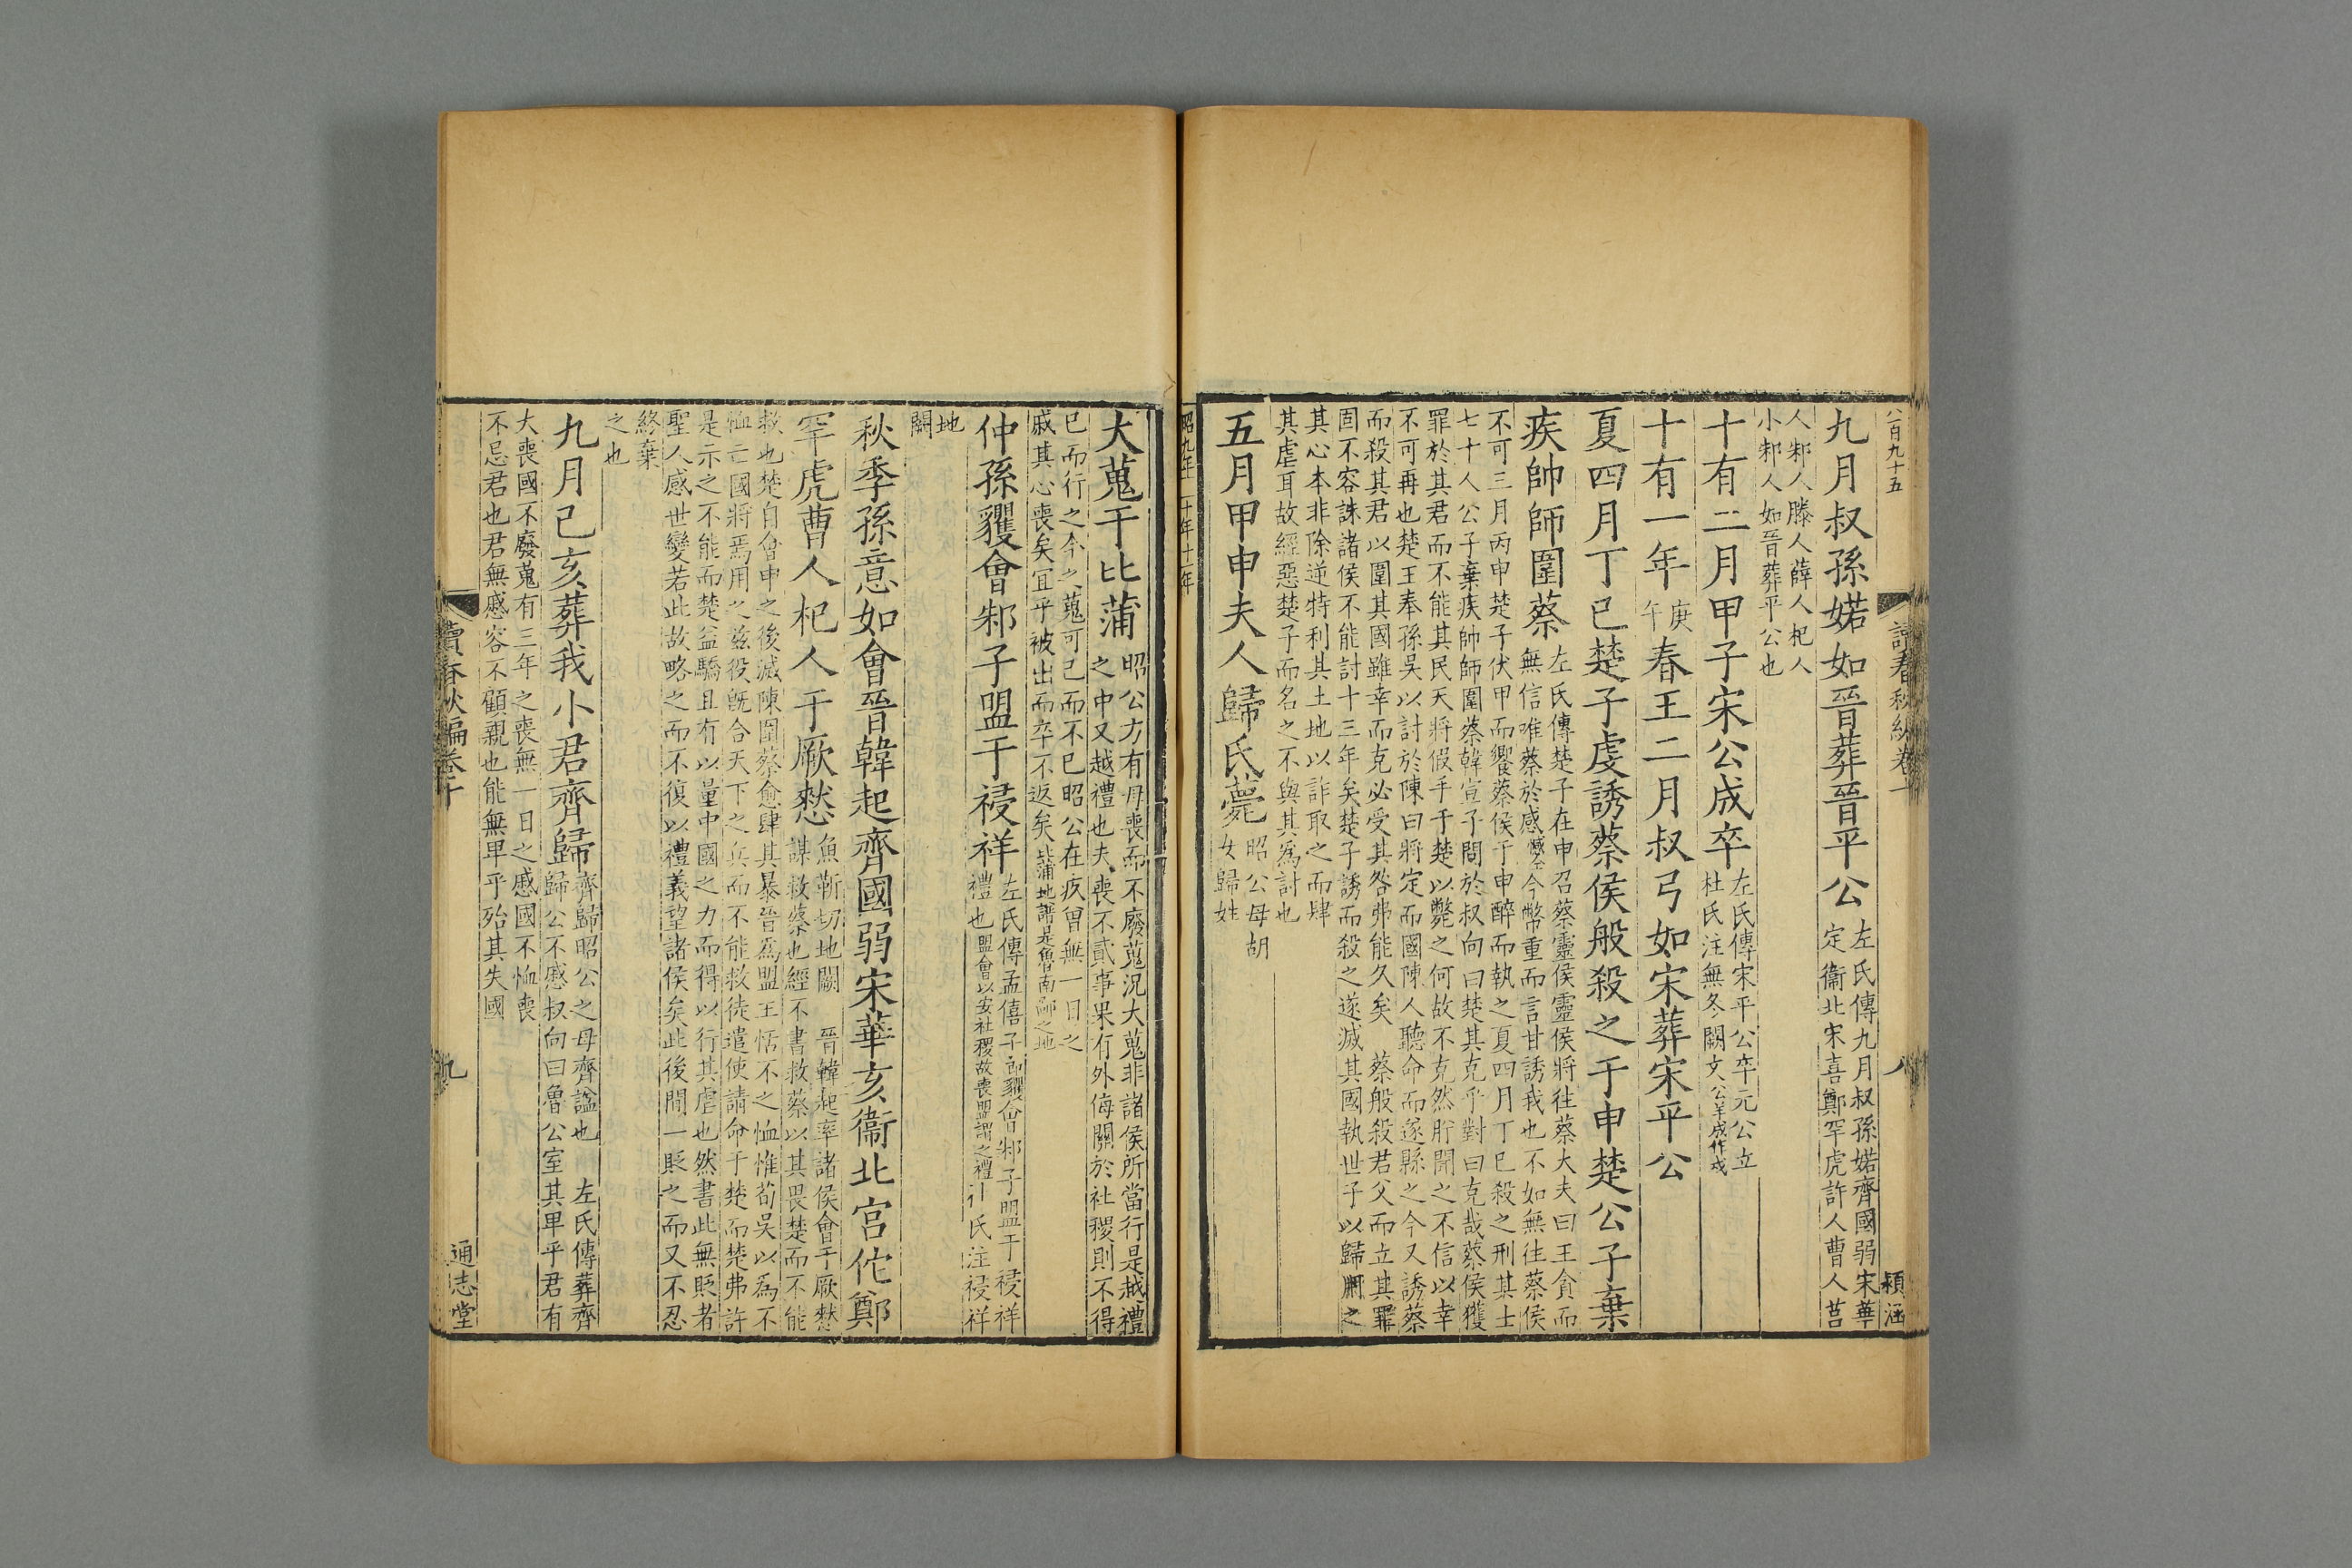 八百九十五
讀春秋編卷十
八
穎涵
九月叔孫婼如晉葬晉平公
左氏傳九月叔孫婼齊國弱宋華
定衞北宫喜鄭罕虎許人曹人莒
人邾人滕人薛人杞人
小邾人如晉葬平公也
十有二月甲子宋公成卒
左氏傳宋平公卒元公立
杜氏注無冬闕文公羊成作戌
十有一年
庚
午
春王二月叔弓如宋葬宋平公
夏四月丁巳楚子虔誘蔡侯般殺之于申楚公子棄
疾帥師圍蔡
左氏傳楚子在申召蔡靈侯靈侯將往蔡大夫曰王貪而
無信唯蔡於感今幣重而言甘誘我也不如無往蔡侯
不可三月丙申楚子伏甲而饗蔡侯于申醉而執之夏四月丁巳殺之刑其士
七十人公子棄疾帥師圍蔡韓宣子問於叔向曰楚其克乎對曰克哉蔡侯獲
罪於其君而不能其民天將假手于楚以斃之何故不克然肸聞之不信以幸
不可再也楚王奉孫吳以討於陳曰將定而國陳人聽命而遂縣之今又誘蔡
而殺其君以圍其國雖幸而克必受其咎弗能久矣 蔡般殺君父而立其罪
固不容誅諸侯不能討十三年矣楚子誘而殺之遂滅其國執世子以歸用之
其心本非除逆特利其土地以詐取之而肆
其虐耳故經惡楚子而名之不與其爲討也
五月甲申夫人歸氏薨
昭公母胡
女歸姓
昭九年 十年十一年
大蒐于比蒲
昭公方有母喪而不廢蒐況大蒐非諸侯所當行是越禮
之中又越禮也夫喪不貳事果有外侮關於社稷則不得
已而行之今之蒐可已而不已昭公在疚曾無一日之
慼其心喪矣宜乎被出而卒不返矣比蒲地譜是魯南鄙之地
仲孫貜會邾子盟于祲祥
左氏傳孟僖子即貜會邾子盟于祲祥
禮也盟會以安社稷故喪盟謂之禮杜氏注祲祥
地
闕
秋季孫意如會晉韓起齊國弱宋華亥衞北宫佗鄭
罕虎曹人杞人于厥憖
魚靳切地闕 晉韓起率諸侯會于厥憖
謀救蔡也經不書救蔡以其畏楚而不能
救也楚自會申之後滅陳圍蔡愈肆其暴晉爲盟主恬不之恤惟荀吳以爲不
恤亡國將焉用之兹役旣合天下之兵而不能救徒遣使請命于楚而楚弗許
是示之不能而楚益驕且有以量中國之力而得以行其虐也然書此無貶者
聖人感世變若此故略之而不復以禮義望諸侯矣此後間一貶之而又不忍
終棄
之也
九月己亥葬我小君齊歸
齊歸昭公之母齊謚也 左氏傳葬齊
歸公不慼叔向曰魯公室其卑乎君有
大喪國不廢蒐有三年之喪無一日之慼國不恤喪
不忌君也君無慼容不顧親也能無卑乎殆其失國
讀春秋編卷十
九
通志堂